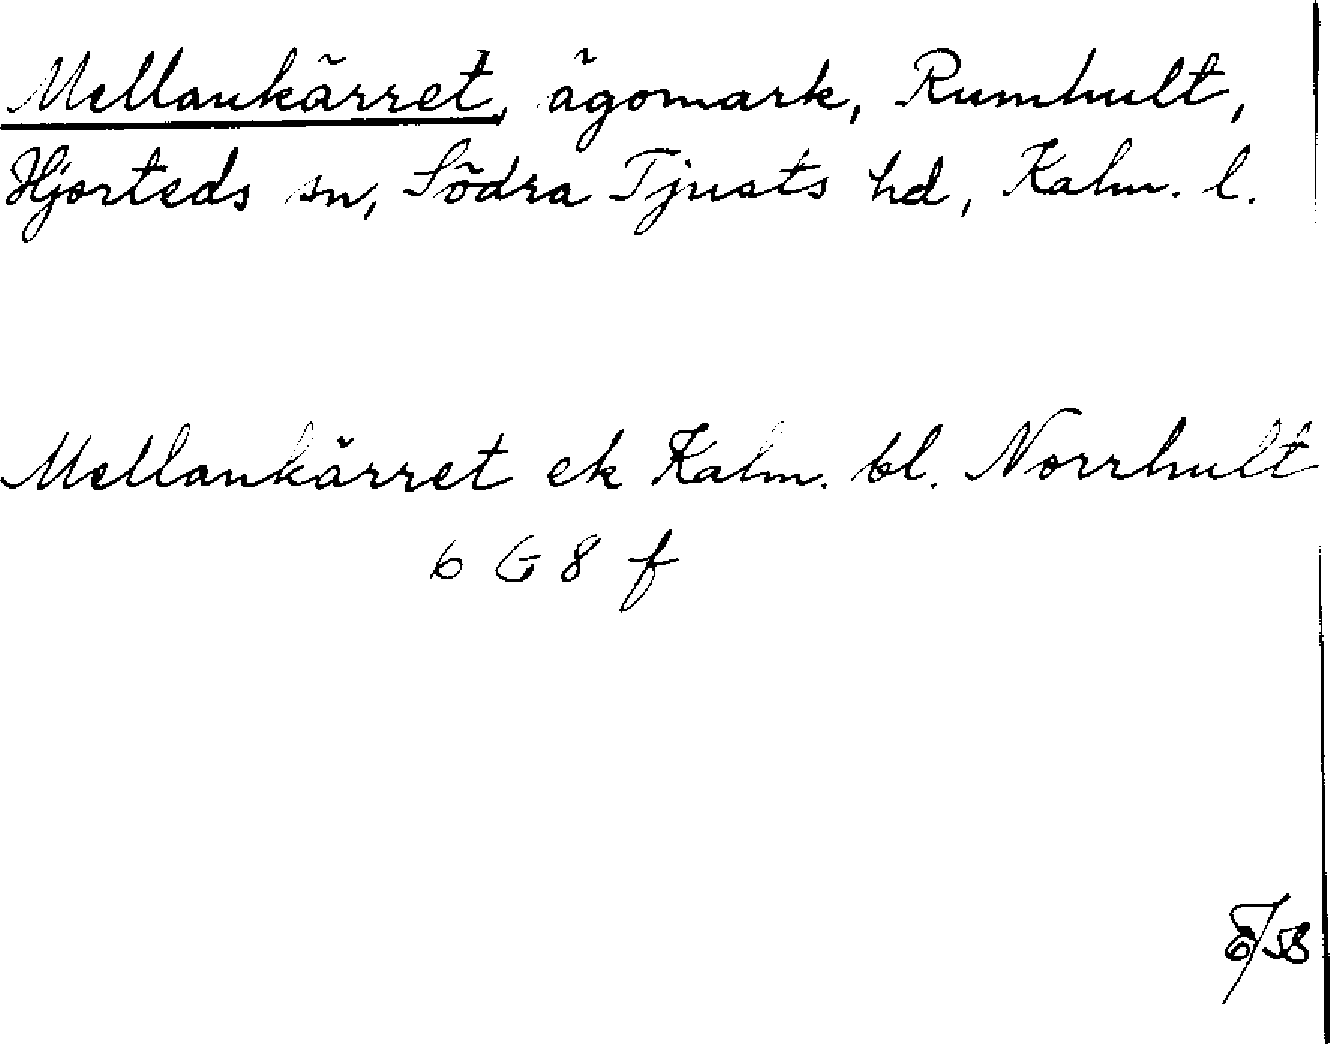 Mellankärret, ägomark, Rumhult,
Hjorteds sn, Södra Tjusts hd, Kalm. l.
Mellankärret ek Kalm. bl. Norrhult
6 G 8 f